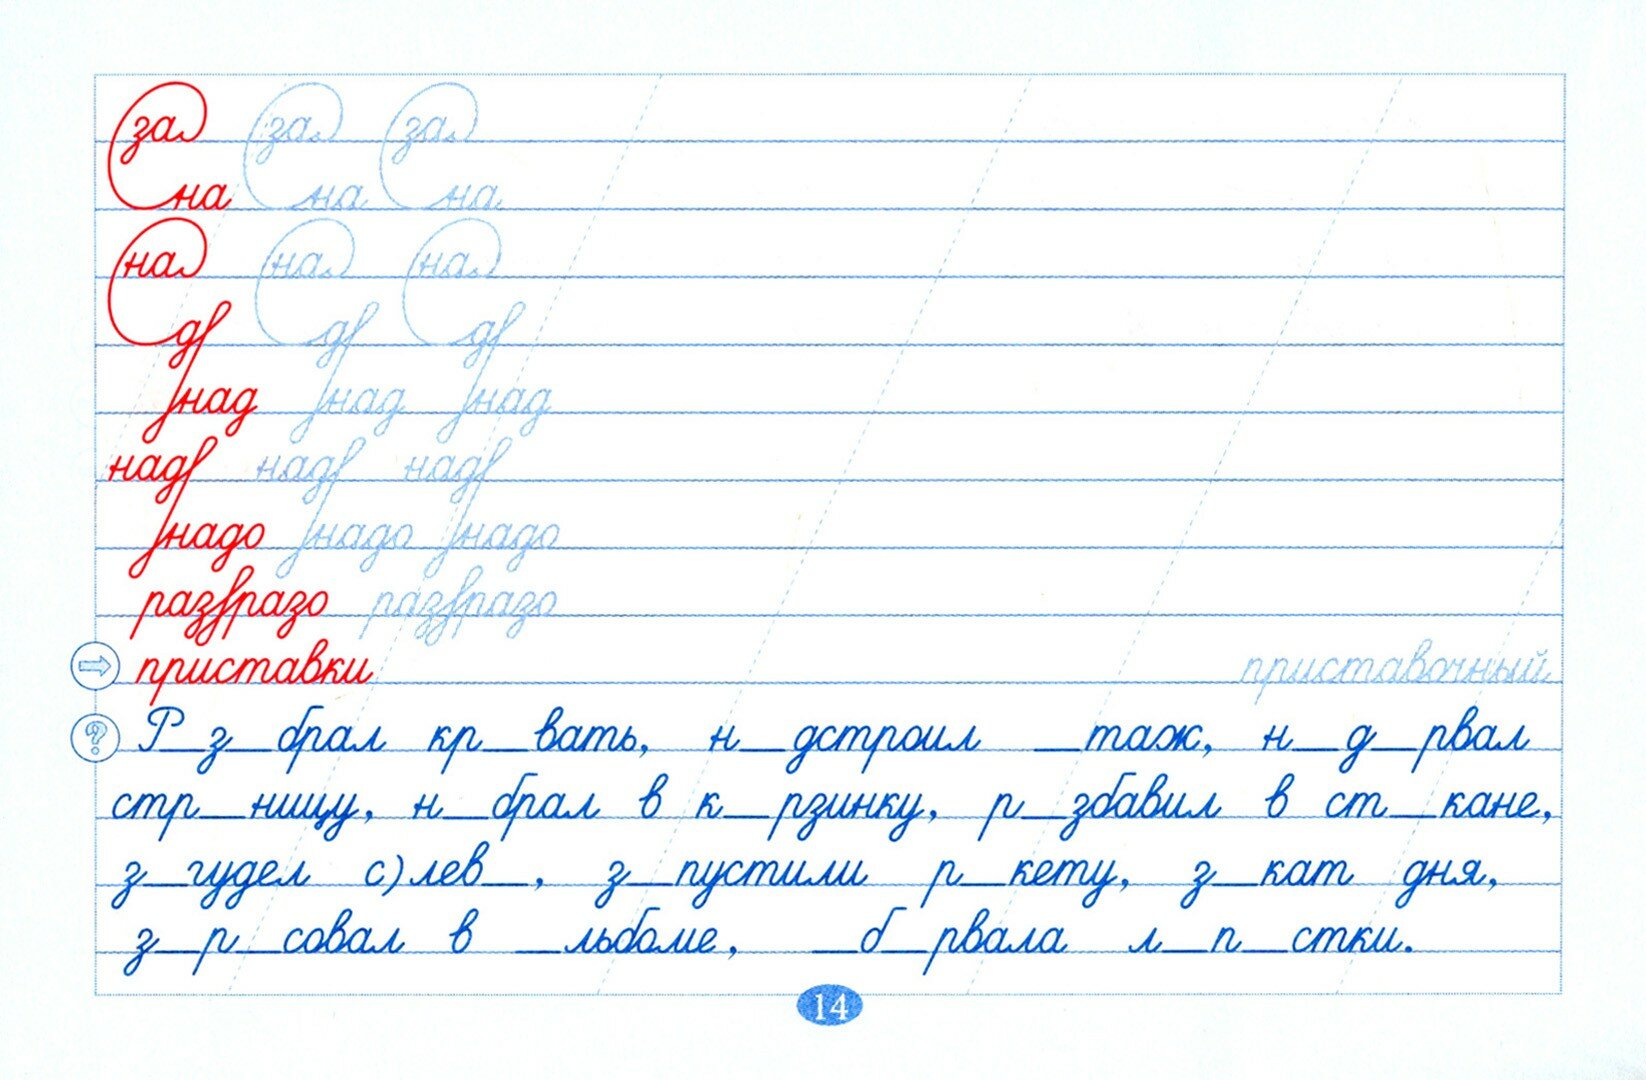 за за за
на на на
на на на
д д д
над над над
над над над
надо надо надо
раз разо раз разо
приставки приставочный
? Р_з_брал кр_вать, н_дстроил _таж, н_д_рвал
стр_ницу, н_брал в к_рзинку, р_збавил в ст_кане,
з_гудел с)лев_, з_пустили р_кету, з_кат дня,
з_р_совал в _льбоме, _б_рвала л_п_стки.
14